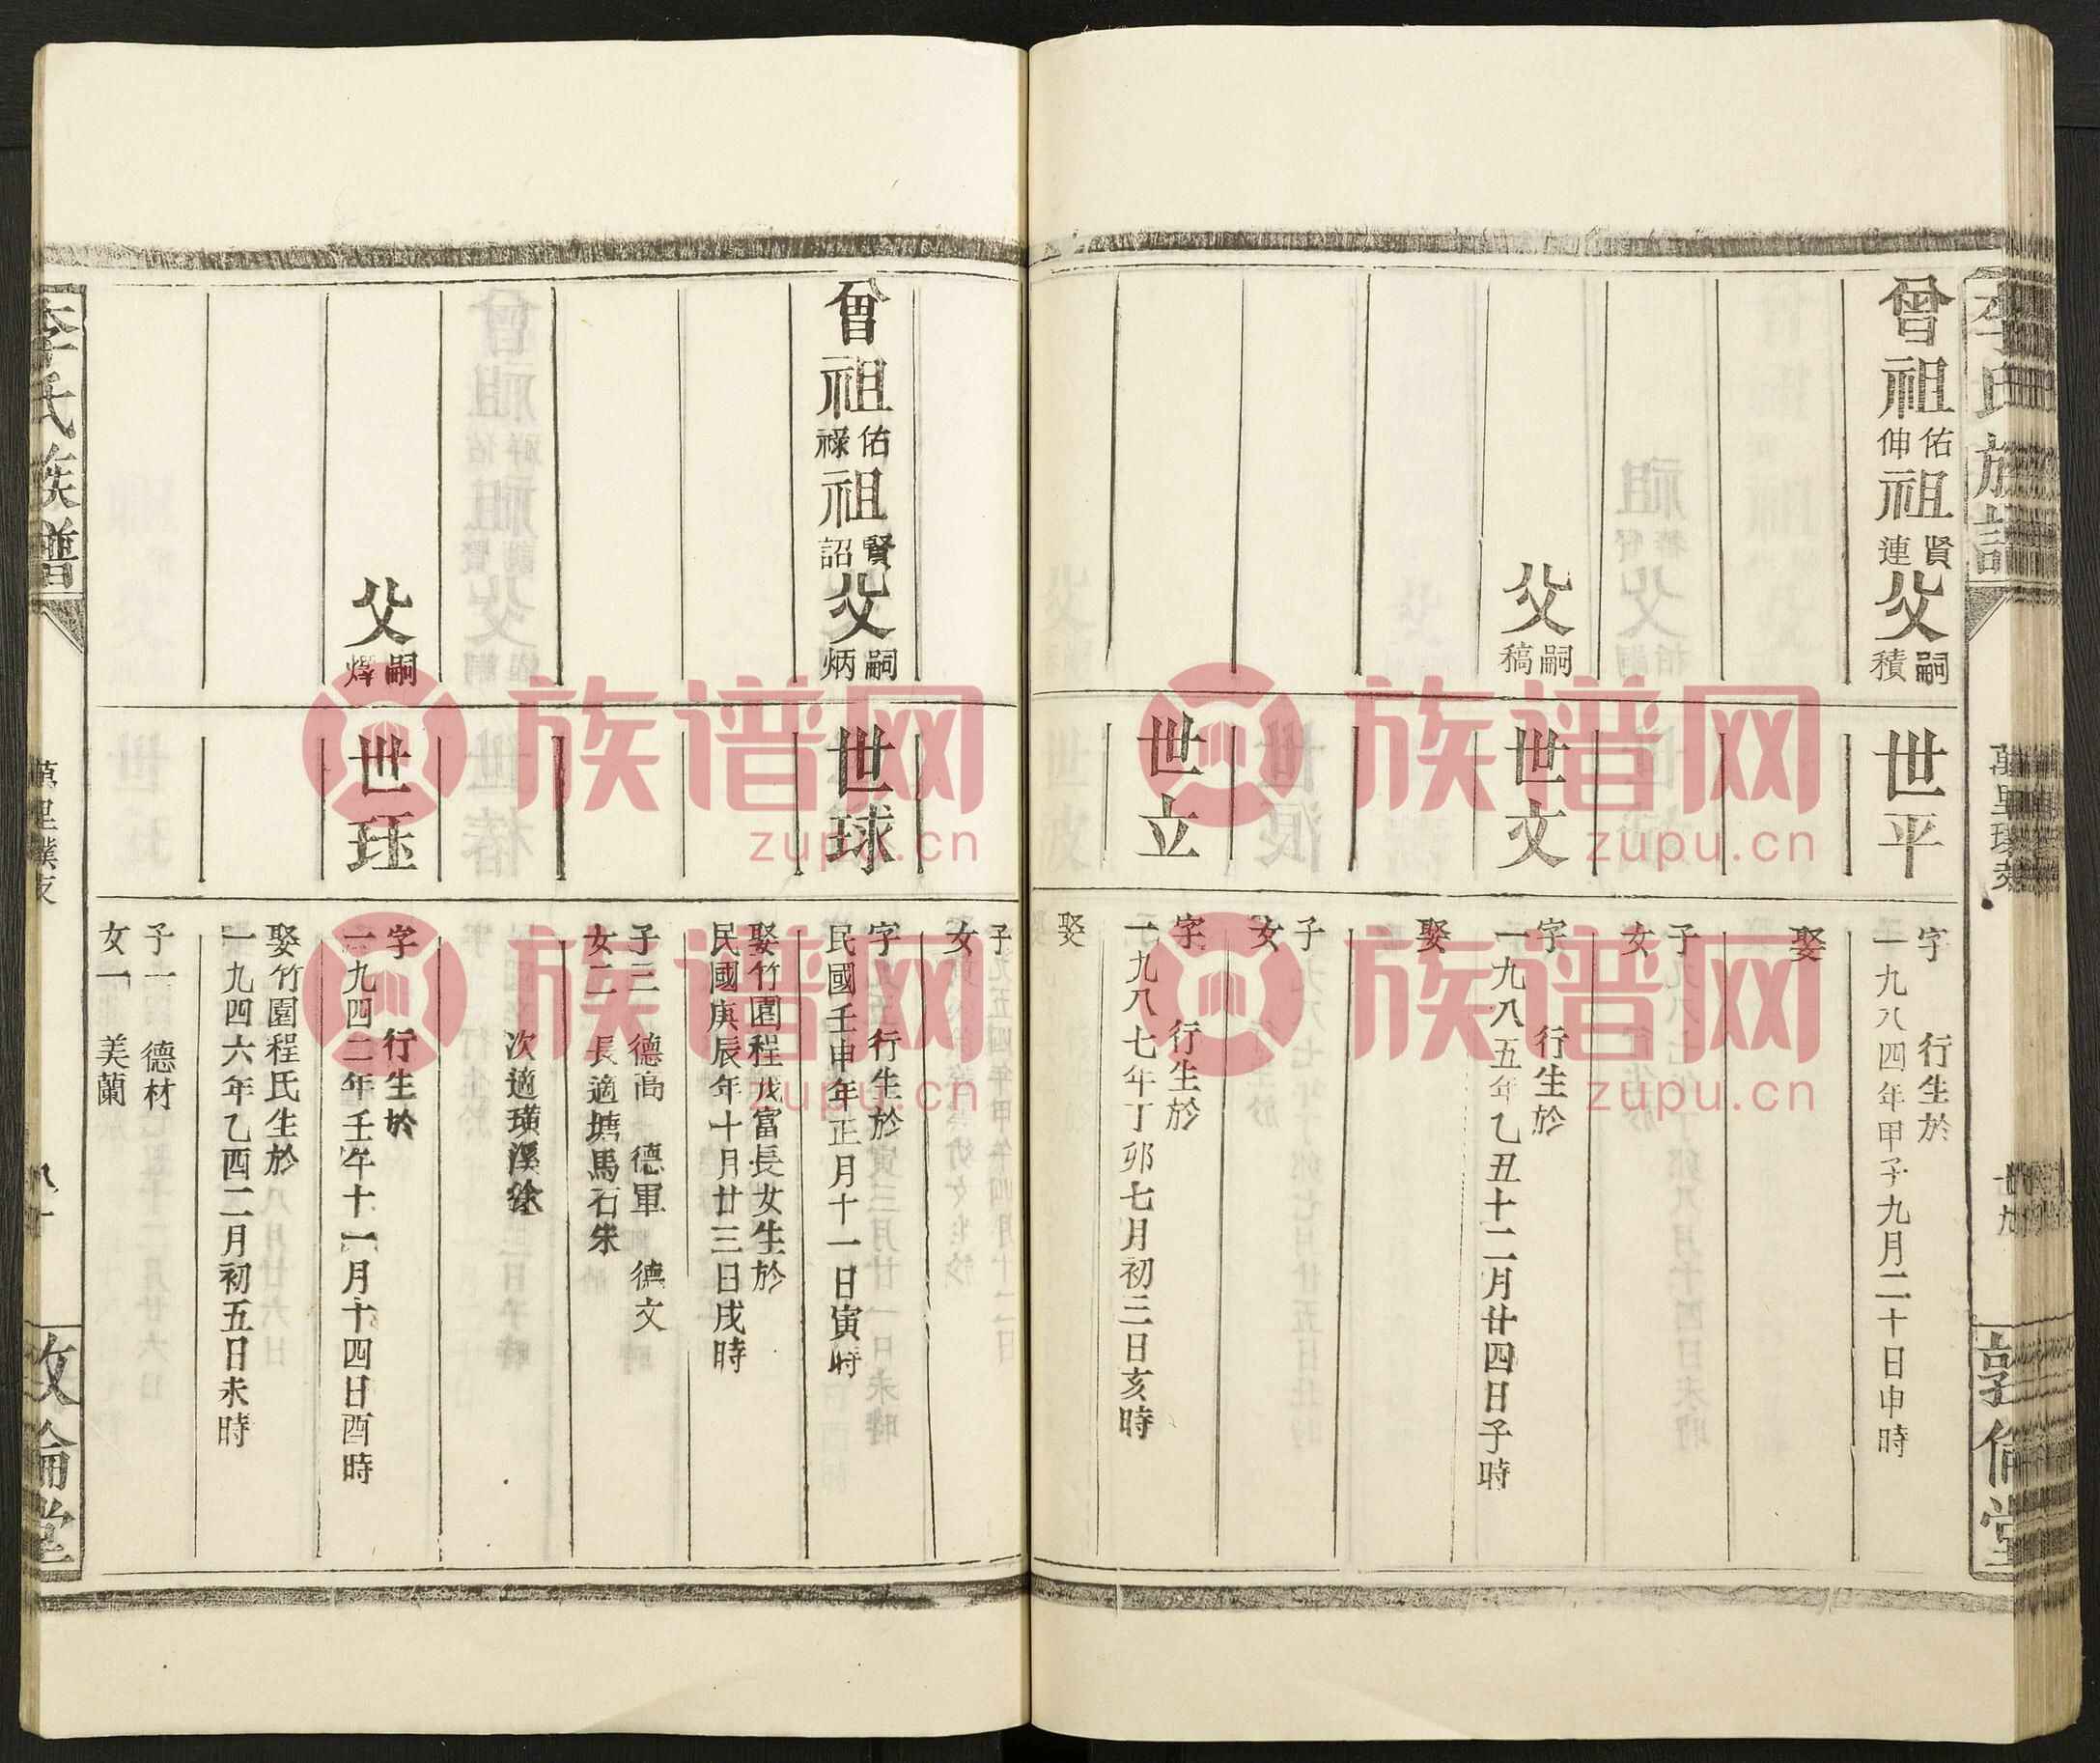 李氏族譜
敦倫堂
曾祖佑伸祖賢連父嗣積
世平
字 行生於
一九八四年甲子九月二十日申時
娶
子
女
父嗣稿
世文
字 行生於
一九八五年乙丑十二月廿四日子時
娶
子
女
世立
字 行生於
一九八七年丁卯七月初三日亥時
娶
子
女
曾祖佑祿祖賢詔父嗣炳
世球
字 行生於
民國壬申年正月十一日寅時
娶竹園程茂富長女生於
民國庚辰年十月廿三日戌時
子三 德高 德軍 德文
女二 長適塘馬石朱
次適璜溪徐
父嗣燡
世珏
字 行生於
一九四二年壬午十一月十四日酉時
娶竹園程氏生於
一九四六年乙酉二月初五日未時
子一 德材
女一 美蘭
李氏族譜
族谱网
zupu.cn
族谱网
zupu.cn
族谱网
zupu.cn
族谱网
zupu.cn